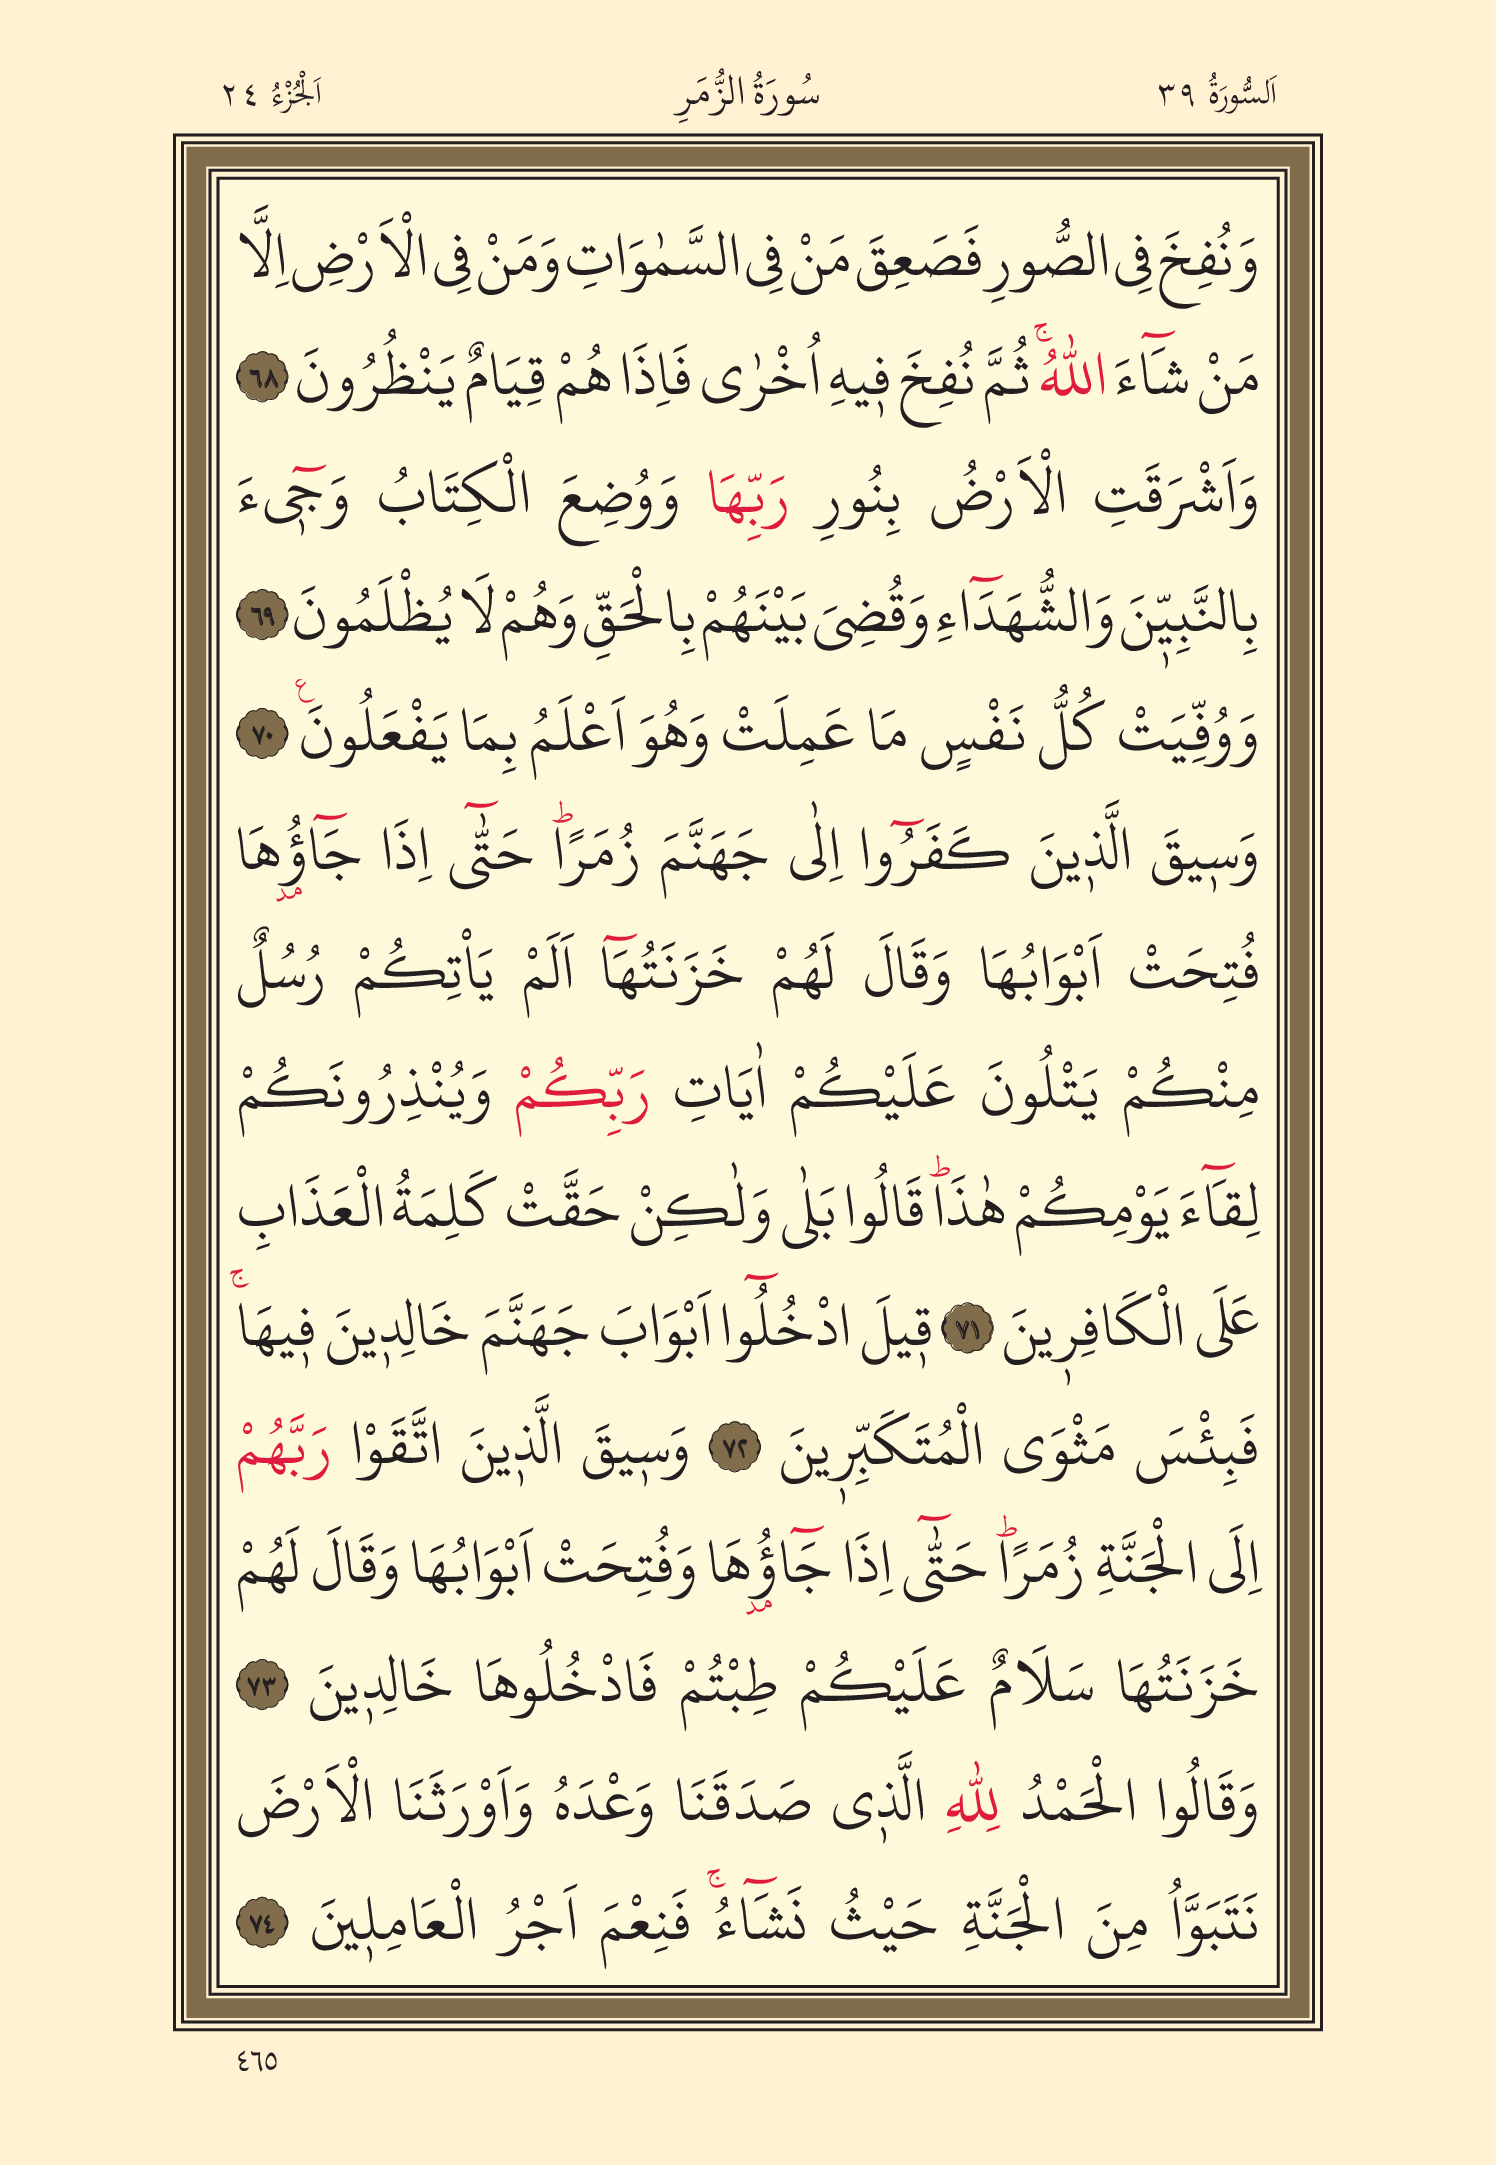 اَلسُّورَةُ ٣٩ سُورَةُ الزُّمَرِ اَلْجُزْءُ ٢٤
وَنُفِخَ فِى الصُّورِ فَصَعِقَ مَنْ فِى السَّمٰوَاتِ وَمَنْ فِى الْاَرْضِ اِلَّا
مَنْ شَٓاءَ اللّٰهُۚ ثُمَّ نُفِخَ ف۪يهِ اُخْرٰى فَاِذَا هُمْ قِيَامٌ يَنْظُرُونَ ﴿٦٨﴾
وَاَشْرَقَتِ الْاَرْضُ بِنُورِ رَبِّهَا وَوُضِعَ الْكِتَابُ وَج۪ٓىءَ
بِالنَّبِيّ۪نَ وَالشُّهَدَٓاءِ وَقُضِىَ بَيْنَهُمْ بِالْحَقِّ وَهُمْ لَا يُظْلَمُونَ ﴿٦٩﴾
وَوُفِّيَتْ كُلُّ نَفْسٍ مَا عَمِلَتْ وَهُوَ اَعْلَمُ بِمَا يَفْعَلُونَ ع ﴿٧٠﴾
وَس۪يقَ الَّذ۪ينَ كَفَرُٓوا اِلٰى جَهَنَّمَ زُمَرًاۜ حَتّٰٓى اِذَا جَٓاؤُ۫هَا مد
فُتِحَتْ اَبْوَابُهَا وَقَالَ لَهُمْ خَزَنَتُهَٓا اَلَمْ يَاْتِكُمْ رُسُلٌ
مِنْكُمْ يَتْلُونَ عَلَيْكُمْ اٰيَاتِ رَبِّكُمْ وَيُنْذِرُونَكُمْ
لِقَٓاءَ يَوْمِكُمْ هٰذَاۜ قَالُوا بَلٰى وَلٰكِنْ حَقَّتْ كَلِمَةُ الْعَذَابِ
عَلَى الْكَافِر۪ينَ ﴿٧١﴾ ق۪يلَ ادْخُلُٓوا اَبْوَابَ جَهَنَّمَ خَالِد۪ينَ ف۪يهَاۚ
فَبِئْسَ مَثْوَى الْمُتَكَبِّر۪ينَ ﴿٧٢﴾ وَس۪يقَ الَّذ۪ينَ اتَّقَوْا رَبَّهُمْ
اِلَى الْجَنَّةِ زُمَرًاۜ حَتّٰٓى اِذَا جَٓاؤُ۫هَا مد وَفُتِحَتْ اَبْوَابُهَا وَقَالَ لَهُمْ
خَزَنَتُهَا سَلَامٌ عَلَيْكُمْ طِبْتُمْ فَادْخُلُوهَا خَالِد۪ينَ ﴿٧٣﴾
وَقَالُوا الْحَمْدُ لِلّٰهِ الَّذ۪ى صَدَقَنَا وَعْدَهُ وَاَوْرَثَنَا الْاَرْضَ
نَتَبَوَّاُ مِنَ الْجَنَّةِ حَيْثُ نَشَٓاءُۚ فَنِعْمَ اَجْرُ الْعَامِل۪ينَ ﴿٧٤﴾
٤٦٥